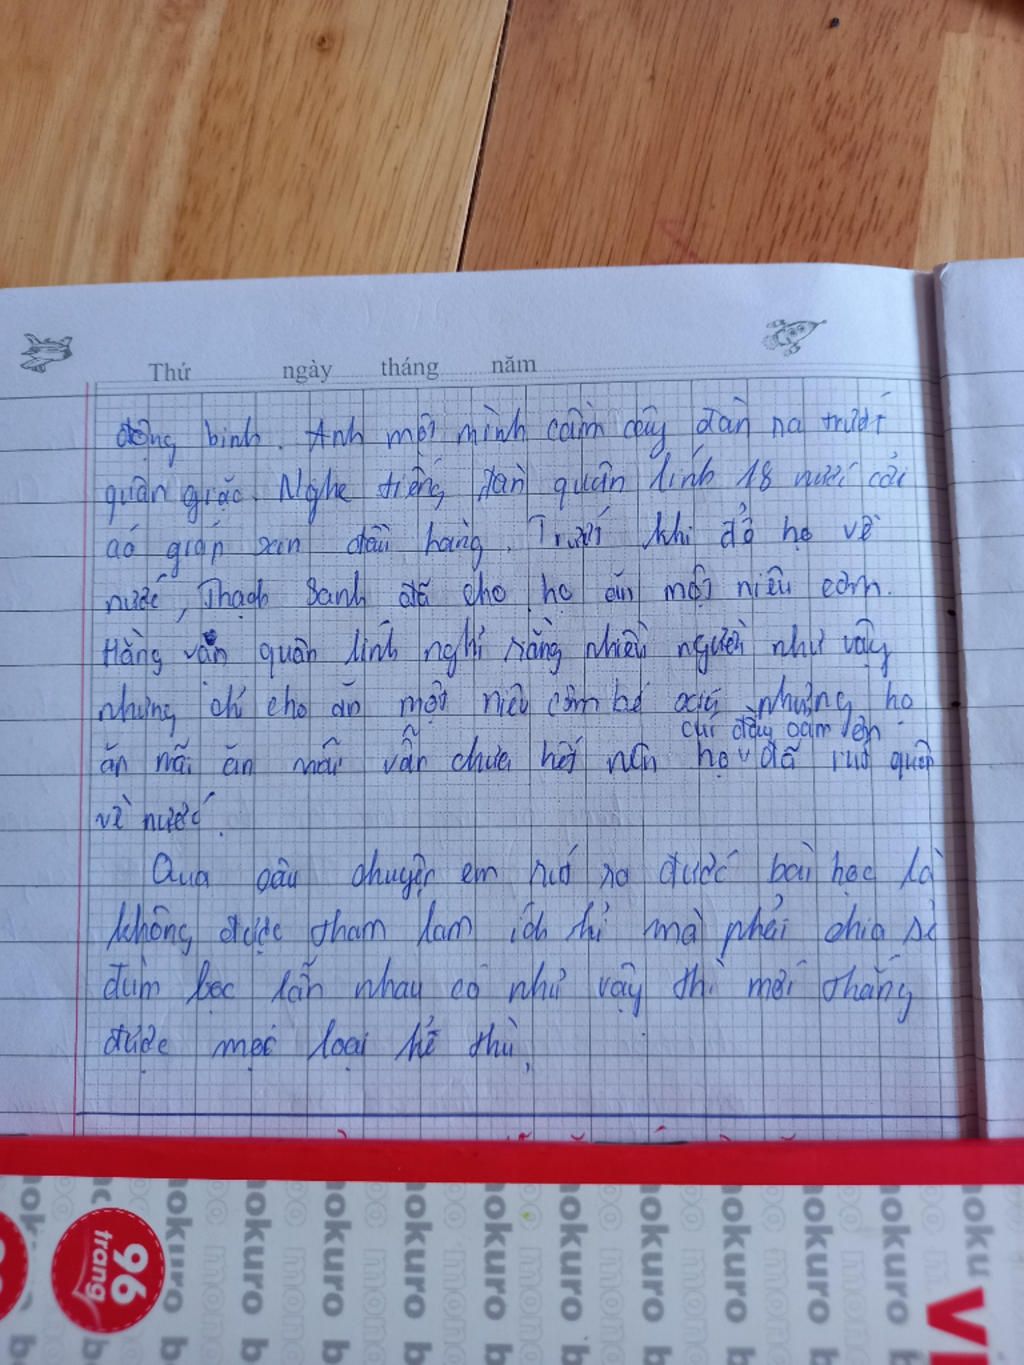 Thứ ngày tháng năm
động binh. Anh một mình cầm cây đàn ra trước
quân giặc. Nghe tiếng đàn quân lính 18 nước cởi
áo giáp xin đầu hàng. Trước khi để họ về
nước, Thạch Sanh đã cho họ ăn một niêu cơm.
Hàng vạn quân lính nghĩ rằng nhiều người như vậy
nhưng chỉ cho ăn một niêu cơm bé xíu nhưng họ
cứ đầy cơm lên
ăn mãi ăn mãi vẫn chưa hết nên họ v đã rút quân
về nước.
Qua câu chuyện em rút ra được bài học là
không được tham lam ích kỉ mà phải chia sẻ
đùm bọc lẫn nhau có như vậy thì mới thắng
được mọi loại kẻ thù.
96
trang
okuro okuro okuro okuro okuro okuro okuro okuro okuro oku